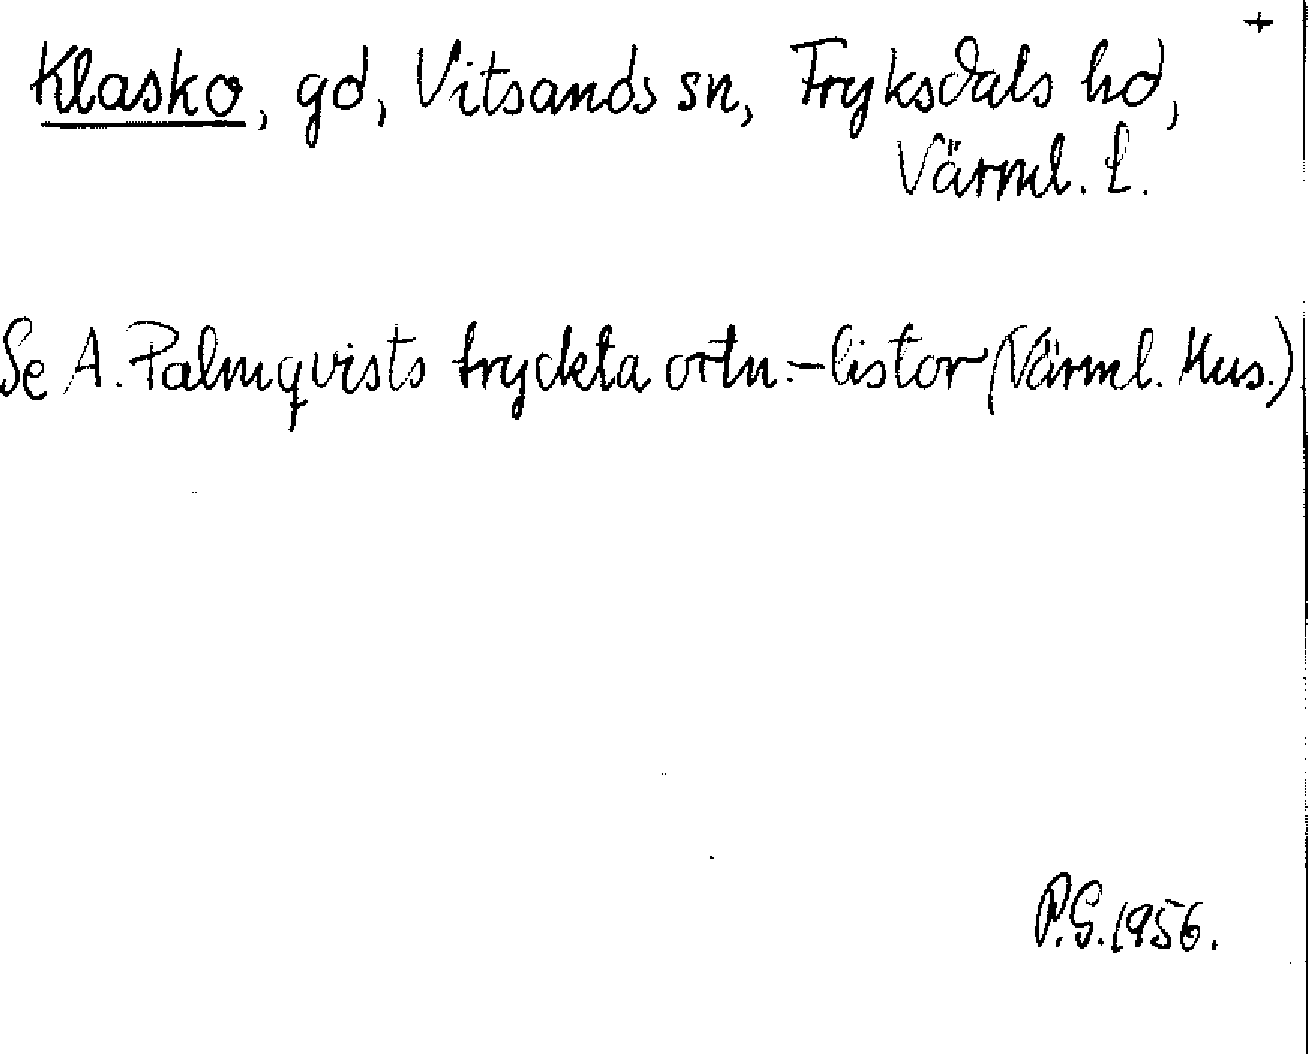 +
Klasko, gd, Vitsands sn, Fryksdals hd,
Värml. l.
Se A. Palmqvists tryckta ortn.-listor (Värml. Mus.)
P.G. 1956.